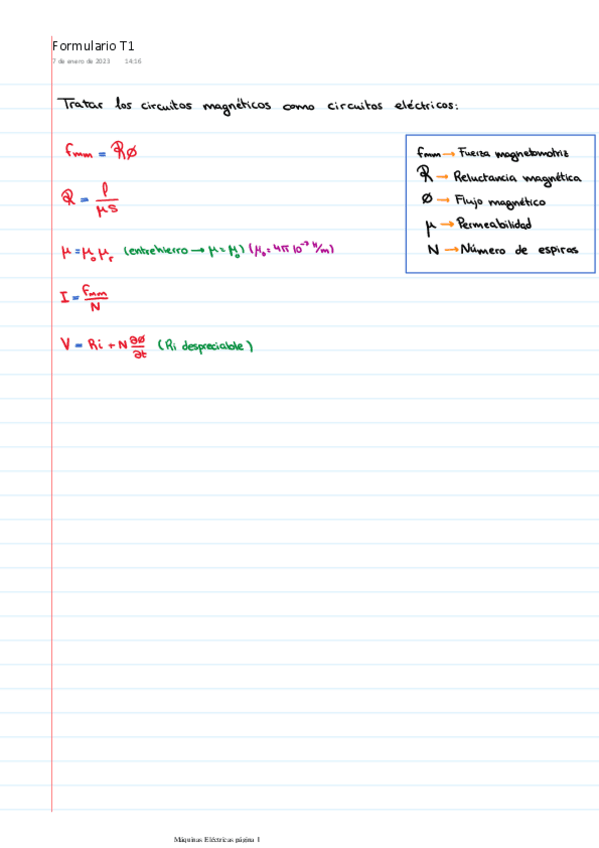 Formulario T1
7 de enero de 2023 14:16
Tratar los circuitos magnéticos como circuitos eléctricos:
fmm = ℛØ
ℛ = l / μS
μ = μ₀ μᵣ (entrehierro → μ = μ₀) (μ₀ = 4π 10⁻⁷ H/m)
I = fmm / N
V = Ri + N ∂Ø/∂t (Ri despreciable)
fmm → Fuerza magnetomotriz
ℛ → Reluctancia magnética
Ø → Flujo magnético
μ → Permeabilidad
N → Número de espiras
Máquinas Eléctricas página 1